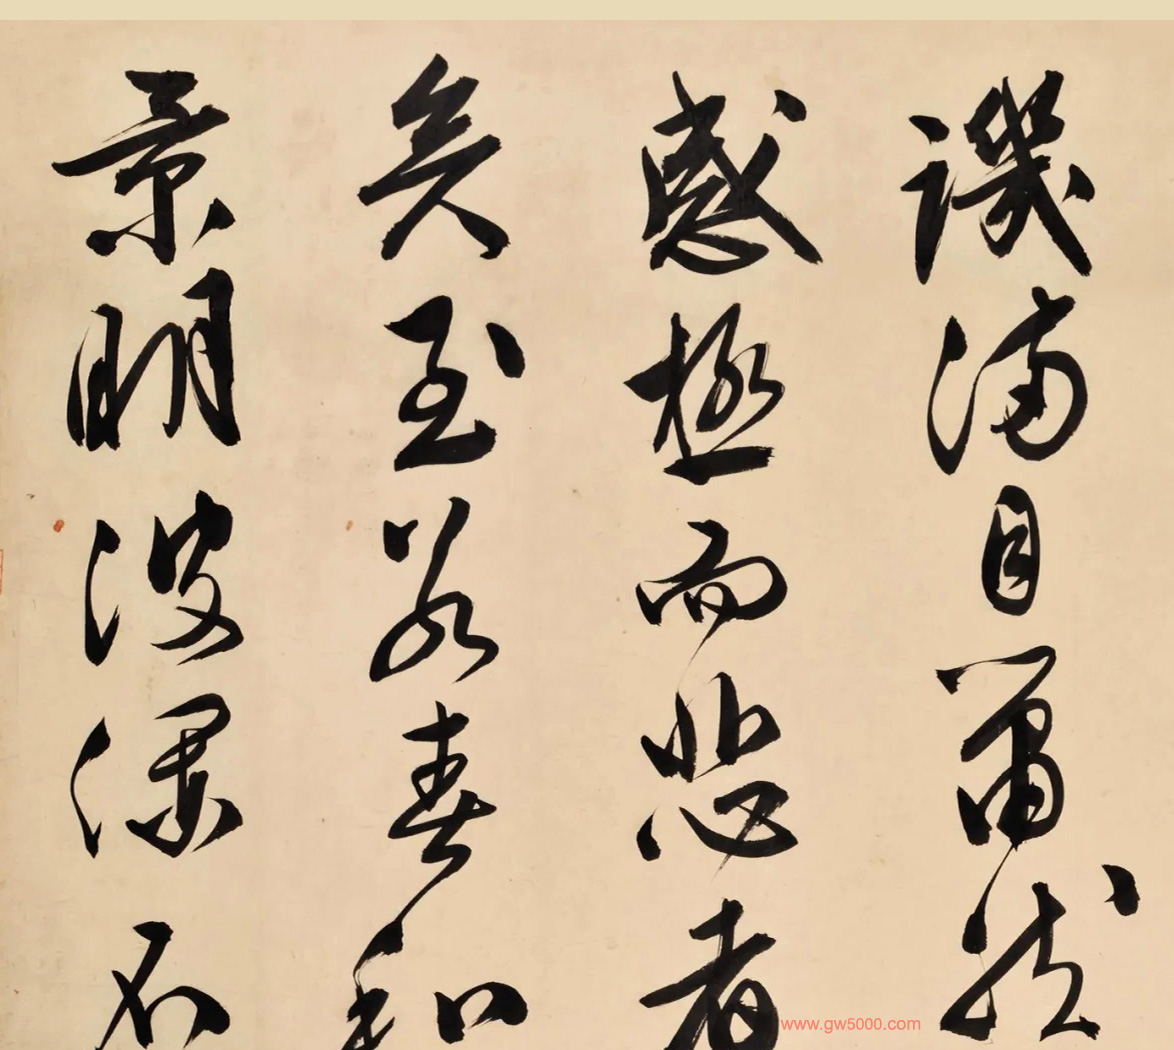 讥满目萧然
感极而悲者
矣至若春和
景明波澜不
www.gw5000.com